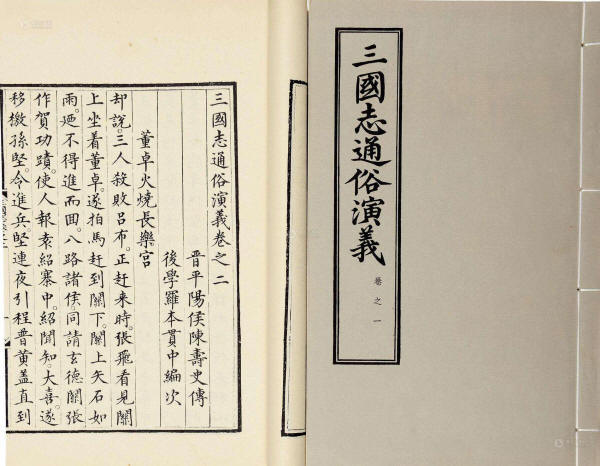 三國志通俗演義
卷之一
三國志通俗演義卷之二
晉平陽侯陳壽史傳
後學羅本貫中編次
董卓火燒長樂宮
却說。三人殺敗呂布。正赶来時。張飛看見關
上坐着董卓。遂拍馬赶到關下。關上矢石如
雨。廼不得進而回。八路諸侯。同請玄德關張
作賀功蹟。使人報袁紹寨中。紹聞知。大喜。遂
移檄孫堅。令進兵。堅連夜引程普黃盖直到